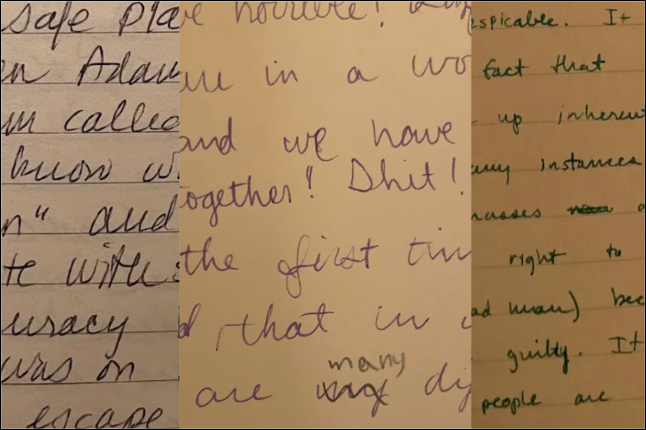 safe pla
en Adam
m called
know w
n" and
te with
uracy
was on
escape
e horrible!
are in a wo
and we have
ogether! Dhit!
the first tim
d, that in
many
are di
espicable. It
fact that
up inheren
any instances
masses a
right to
ad man) bec
guilty. It
people are